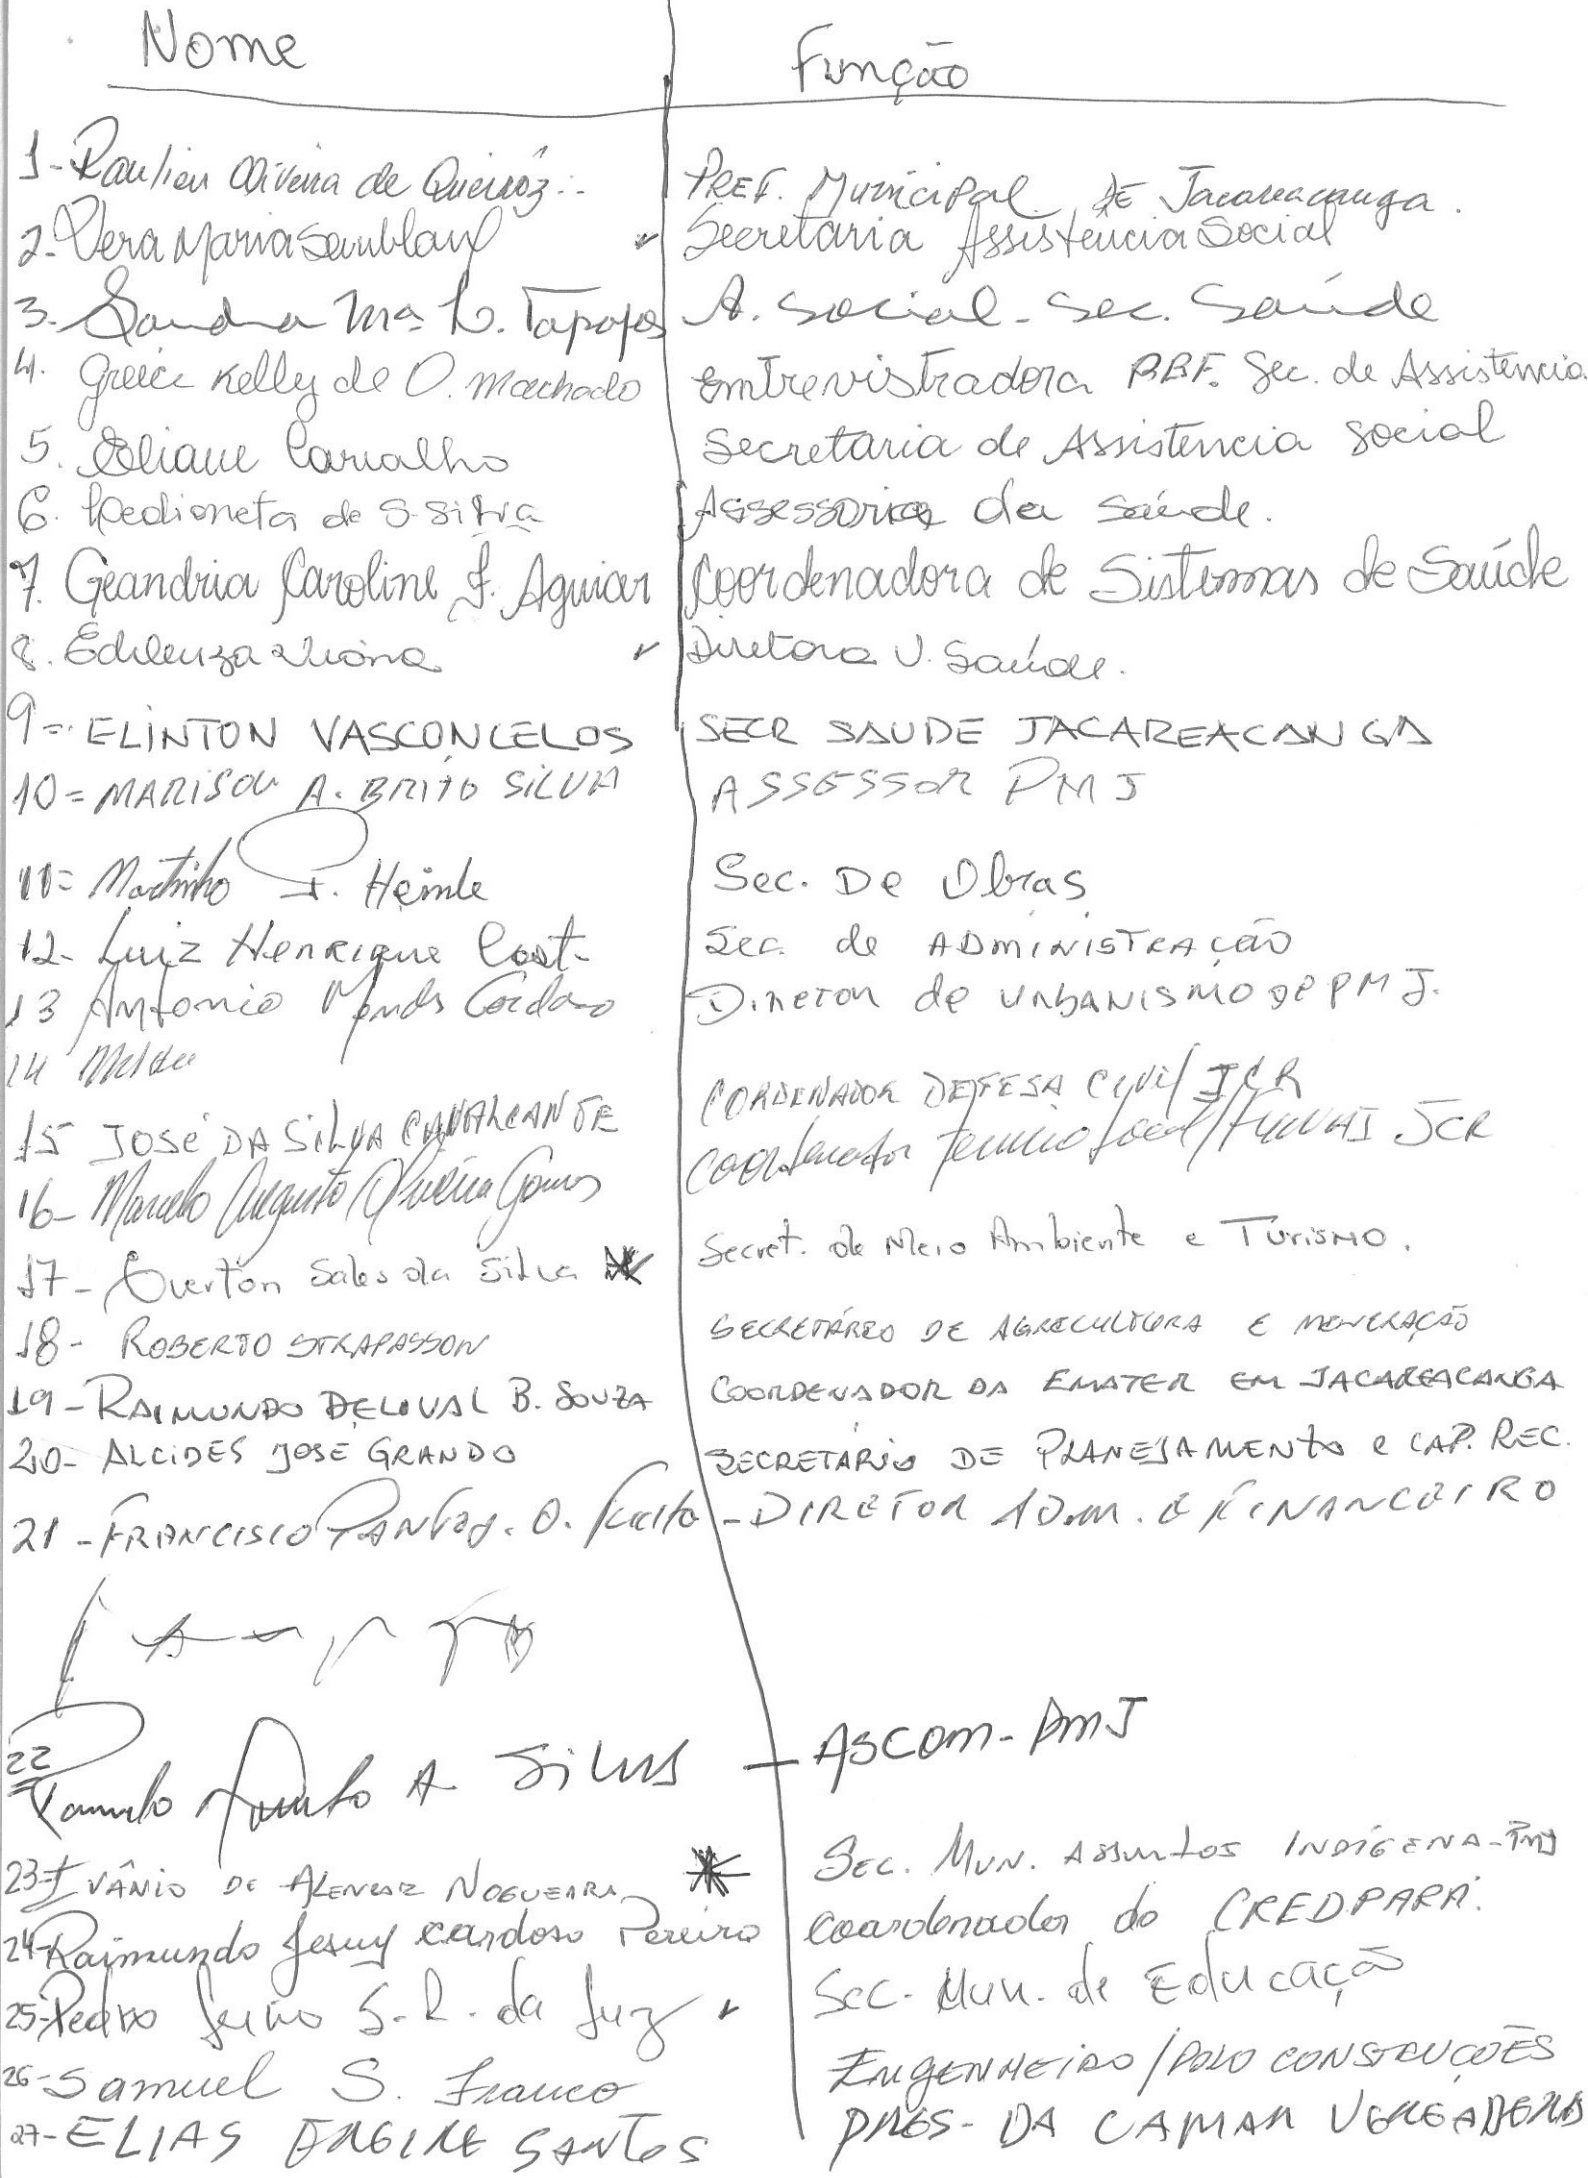 Nome Função
1- Raulien Oliveira de Queiróz Pref. Municipal de Jacareacanga.
2- Vera Maria Secretaria Assistência Social
3- Sandra Mª L. Tapajós A. Social - Sec. Saúde
4. Greice Kelly de O. Machado entrevistradora PBF. Sec. de Assistência
5. Eliane Carvalho Secretaria de Assistencia Social
6. de S. Silva Assessoria da Saúde.
7. Geandria Caroline F. Aguiar Coordenadora de Sistemas de Saúde
8. Edileuza Viana Diretora V. Saúde.
9= ELINTON VASCONCELOS SECR SAUDE JACAREACANGA
10= MARISOU A. BRITO SILVA ASSESSOR PMJ
11= Martinho I. Heinle Sec. De Obras
12- Luiz Henrique Cost Sec. de ADMINISTRAÇÃO
13 Antonio Mendes Cardoso Diretor de URBANISMO DE PMJ.
14
CORDENADOR DEFESA CIVIL/JCR
15 JOSÉ DA SILVA CAVALCANTE Coordenador Tecnico Local/FUNAI JCR
16- Marcelo Augusto Oliveira Gomes
Secret. de Meio Ambiente e Turismo.
17- Everton Sales da Silva
18- ROBERTO STRAPASSON SECRETÁRIO DE AGRICULTURA E MINERAÇÃO
19- RAIMUNDO DELIVAL B. SOUZA COORDENADOR DA EMATER EM JACAREACANGA
20- ALCIDES JOSÉ GRANDO SECRETÁRIO DE PLANEJAMENTO e CAP. REC.
21- FRANCISCO O. - DIRETOR ADM. E FINANCEIRO
22 A Silva - ASCOM - PMJ
23- IVÂNIO DE ALENCAR NOGUEIRA SEC. MUN. ASSUNTOS INDÍGENA - PMJ
24- Raimundo Jesuy Cardoso Pereira Coordenador do CREDPARÁ.
25- Pedro S. R. da Luz Sec. Mun. de Educação
26- Samuel S. Franco ENGENHEIRO/POLO CONSTRUÇÕES
27- ELIAS FREIRE SANTOS PRES- DA CAMAR VEREADERES